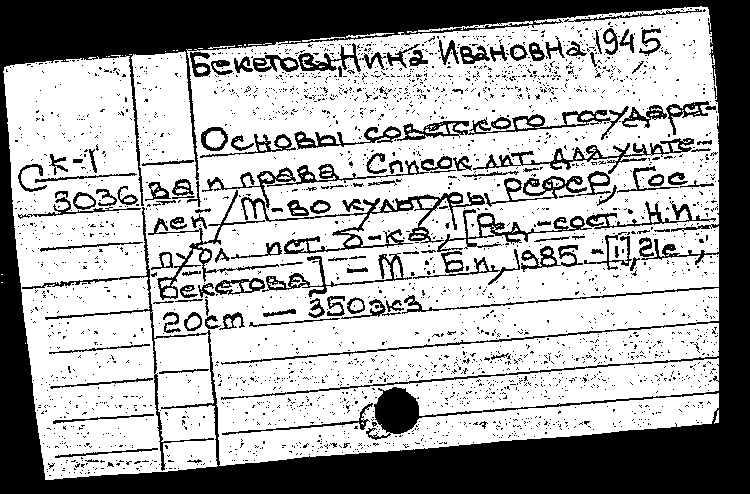 Бекетова, Нина Ивановна, 1945
Основы советского государст-
ва и права : Список лит. для учите-
лей / М-во культуры РСФСР, Гос.
публ. ист. б-ка ; [Ред.-сост. : Н.И.
Бекетова]. — М. : Б.и., 1985. - [1], 21с. ;
20см. — 350экз.
СК-1
3036